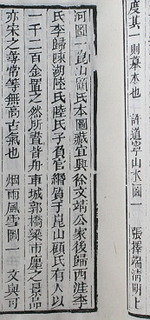 度其一則摹本也　許道寧山水圖一　張擇端清明上
河圖一崑山顧氏本圖藏宜興徐文靖公家後歸西涯李
氏李歸陳湖陸氏陸氏子負官緡質于崑山顧氏有人以
一千二百金置之然所畫皆舟車城郭橋梁市廛之景品
亦宋之尋常等無高古氣也　烟雨風雪圖　文與可